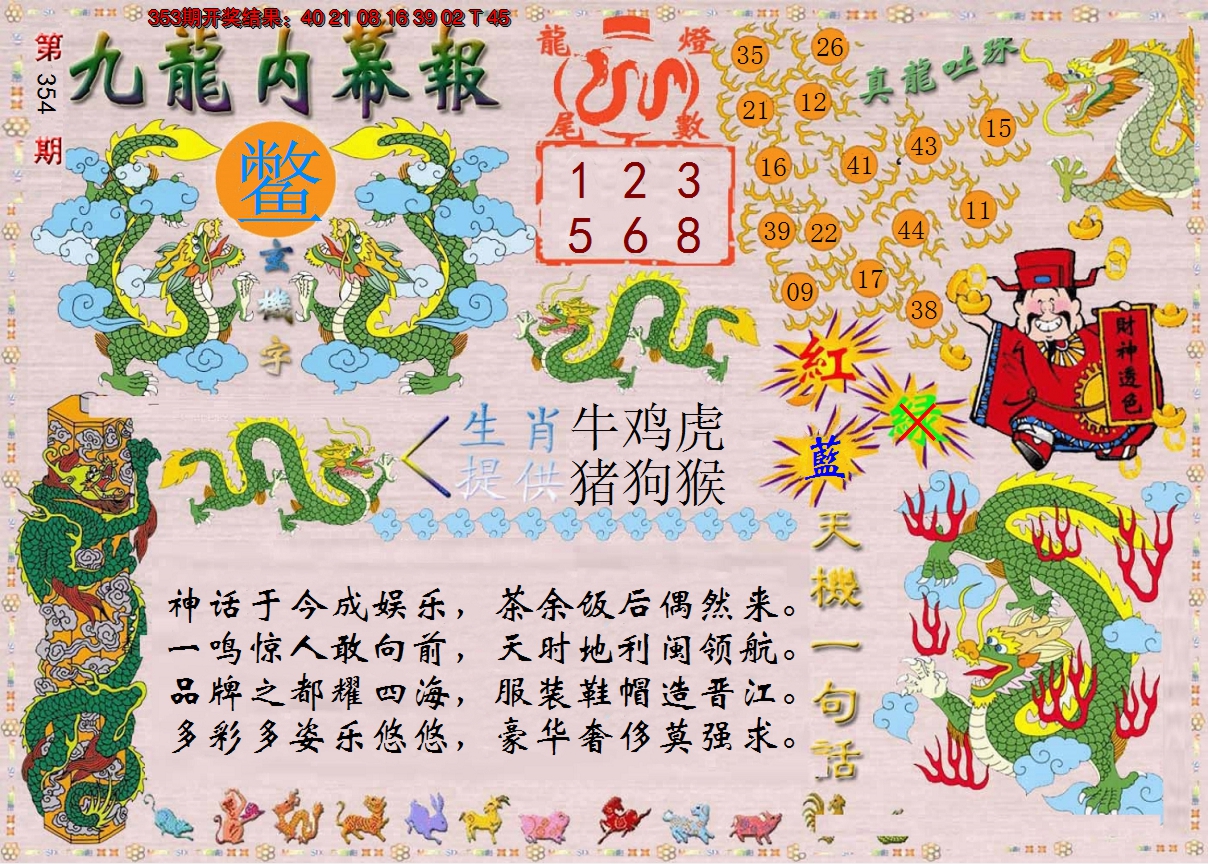 353期开奖结果：40 21 08 16 39 02 T 45
第354期
九龍内幕報
鳖
玄機字
龍燈
尾數
1 2 3
5 6 8
真龍吐珠
35 26
21 12
16 41 43 15
39 22 44 11
09 17 38
紅
绿
藍
財神透色
生肖 牛鸡虎
提供 猪狗猴
天機一句話
神话于今成娱乐，茶余饭后偶然来。
一鸣惊人敢向前，天时地利闽领航。
品牌之都耀四海，服装鞋帽造晋江。
多彩多姿乐悠悠，豪华奢侈莫强求。